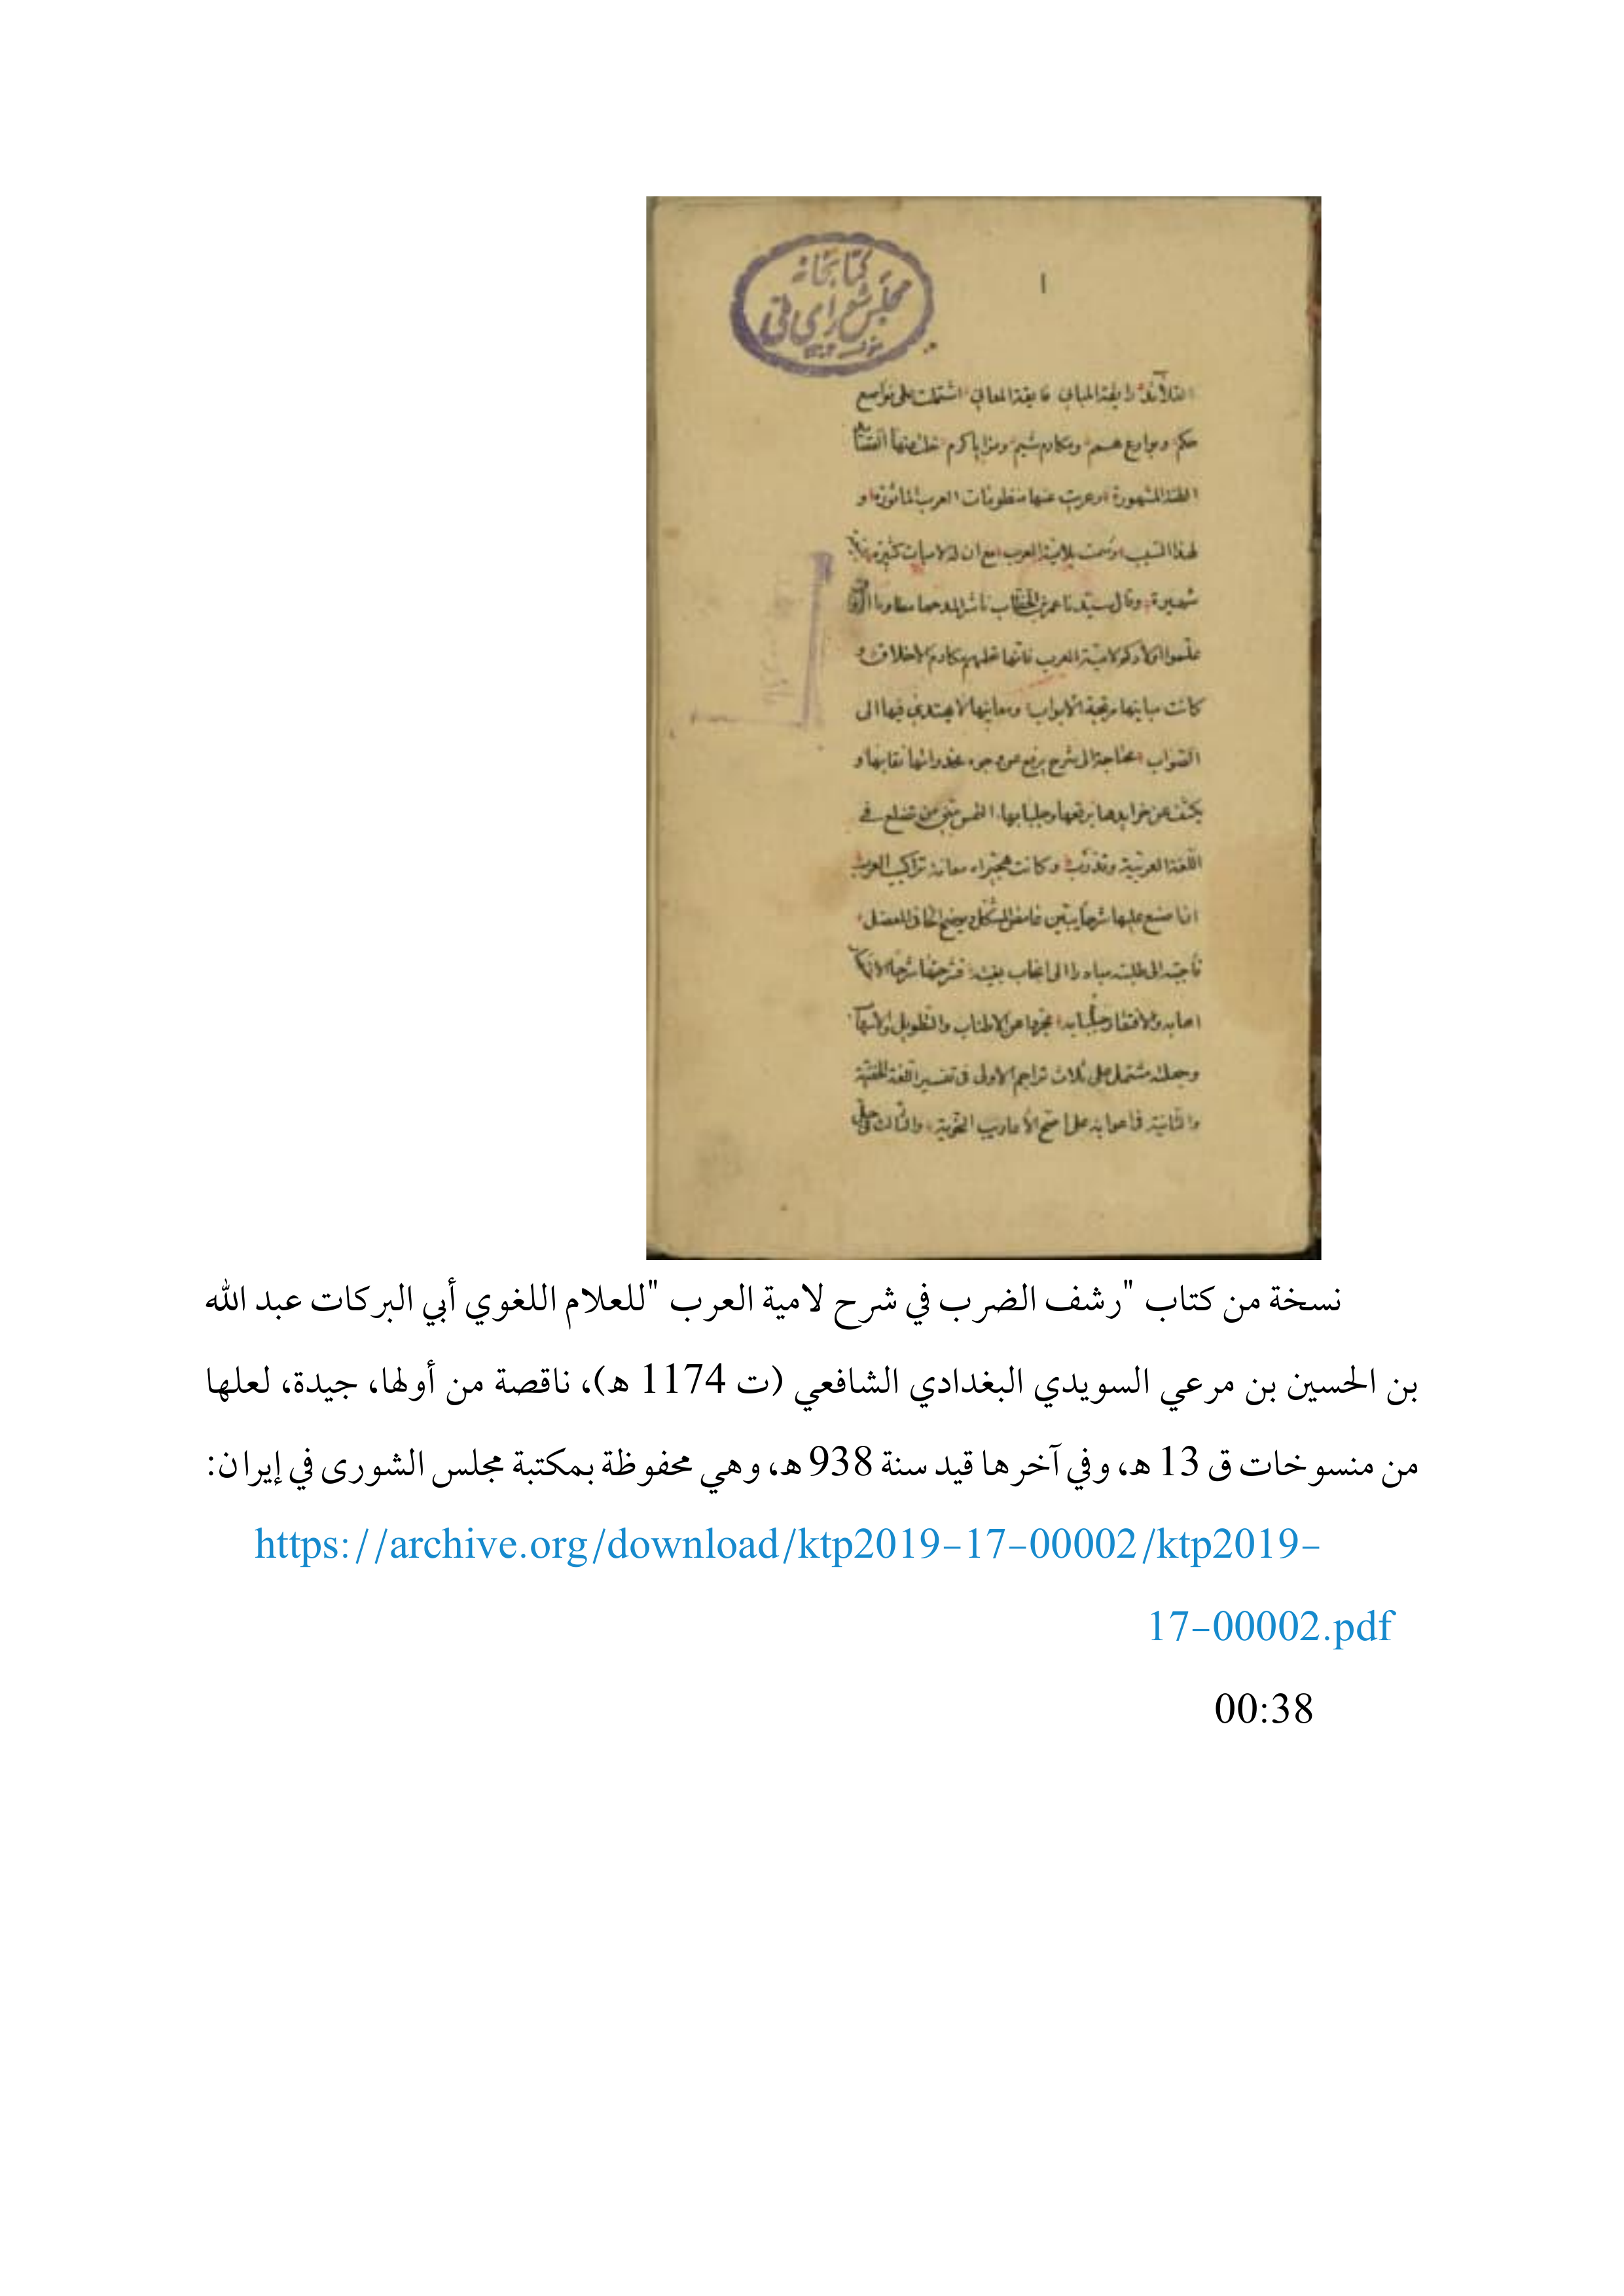 كتابخانه
مجلس شورای ملی
١
رايقة المباني فايقة المعاني اشتملت على
حكم ومكارم شيم ومزايا كرم
المشهورة منظومات العرب المأثورة و
لهذا السبب وسمت بلامية العرب مع ان لاميات كثيرة
شهيرة وقال سيدنا عمر بن الخطاب
علموا اولادكم لامية العرب فانها تعلمهم مكارم الاخلاق و
كانت مبانيها مرتجة الابواب ومعانيها لا يهتدى فيها الى
الصواب محتاجة الى شرح يرفع عن وجوه مخدراتها نقابها و
يكشف عن خرايدها برقعها وجلبابها التمس مني من تضلع في
اللغة العربية وكانت هجيراه تراكيب العرب
ان اصنع عليها شرحا يبين غامض المشكل ويوضح المعضل
فاجبته الى طلبته مبادرا الى بغيته فشرحتها شرحا
عن الاطناب والتطويل
وجعلته مشتمل على ثلاث تراجم الاولى في تفسير اللغة
والثانية في اعرابه على اصح الأعاريب النحوية والثالث في حل
نسخة من كتاب "رشف الضرب في شرح لامية العرب "للعلام اللغوي أبي البركات عبد الله
بن الحسين بن مرعي السويدي البغدادي الشافعي (ت 1174 ه)، ناقصة من أولها، جيدة، لعلها
من منسوخات ق 13 ه، وفي آخرها قيد سنة 938 ه، وهي محفوظة بمكتبة مجلس الشورى في إيران:
https://archive.org/download/ktp2019-17-00002/ktp2019-
17-00002.pdf
00:38